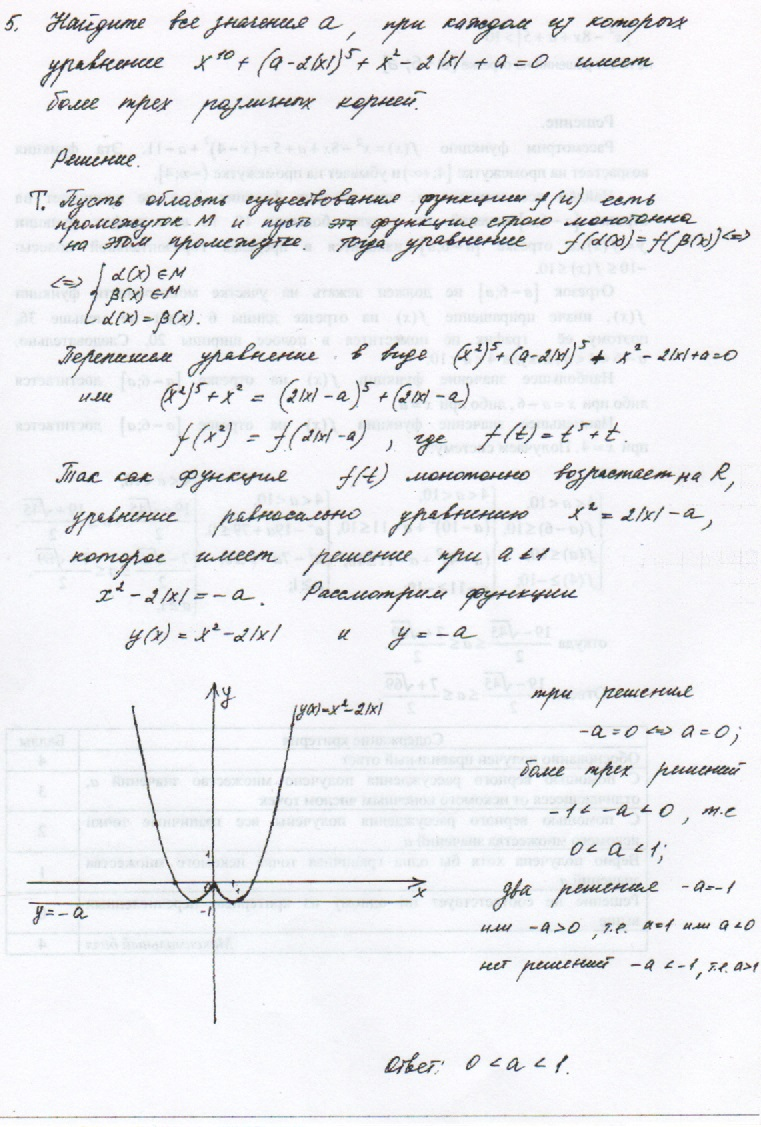 5. Найдите все значения a, при каждом из которых
уравнение x^10 + (a-2|x|)^5 + x^2 - 2|x| + a = 0 имеет
более трех различных корней.
Решение.
Т. Пусть область существования функции f(u) есть
промежуток M и пусть эта функция строго монотонна
на этом промежутке. Тогда уравнение f(α(x)) = f(β(x)) <=>
<=> { α(x) ∈ M
β(x) ∈ M
α(x) = β(x).
Перепишем уравнение в виде (x^2)^5 + (a-2|x|)^5 + x^2 - 2|x| + a = 0
или (x^2)^5 + x^2 = (2|x|-a)^5 + (2|x|-a)
f(x^2) = f(2|x|-a), где f(t) = t^5 + t.
Так как функция f(t) монотонно возрастает на R,
уравнение равносильно уравнению x^2 = 2|x| - a,
которое имеет решение при a ≤ 1
x^2 - 2|x| = -a. Рассмотрим функции
y(x) = x^2 - 2|x| и y = -a
y
y(x) = x^2 - 2|x|
1
0
1
x
-1
y = -a
три решения
-a = 0 <=> a = 0;
более трех решений
-1 < -a < 0, т.е
0 < a < 1;
два решения -a = -1
или -a > 0, т.е. a = 1 или a < 0
нет решений -a < -1, т.е. a > 1
Ответ: 0 < a < 1.